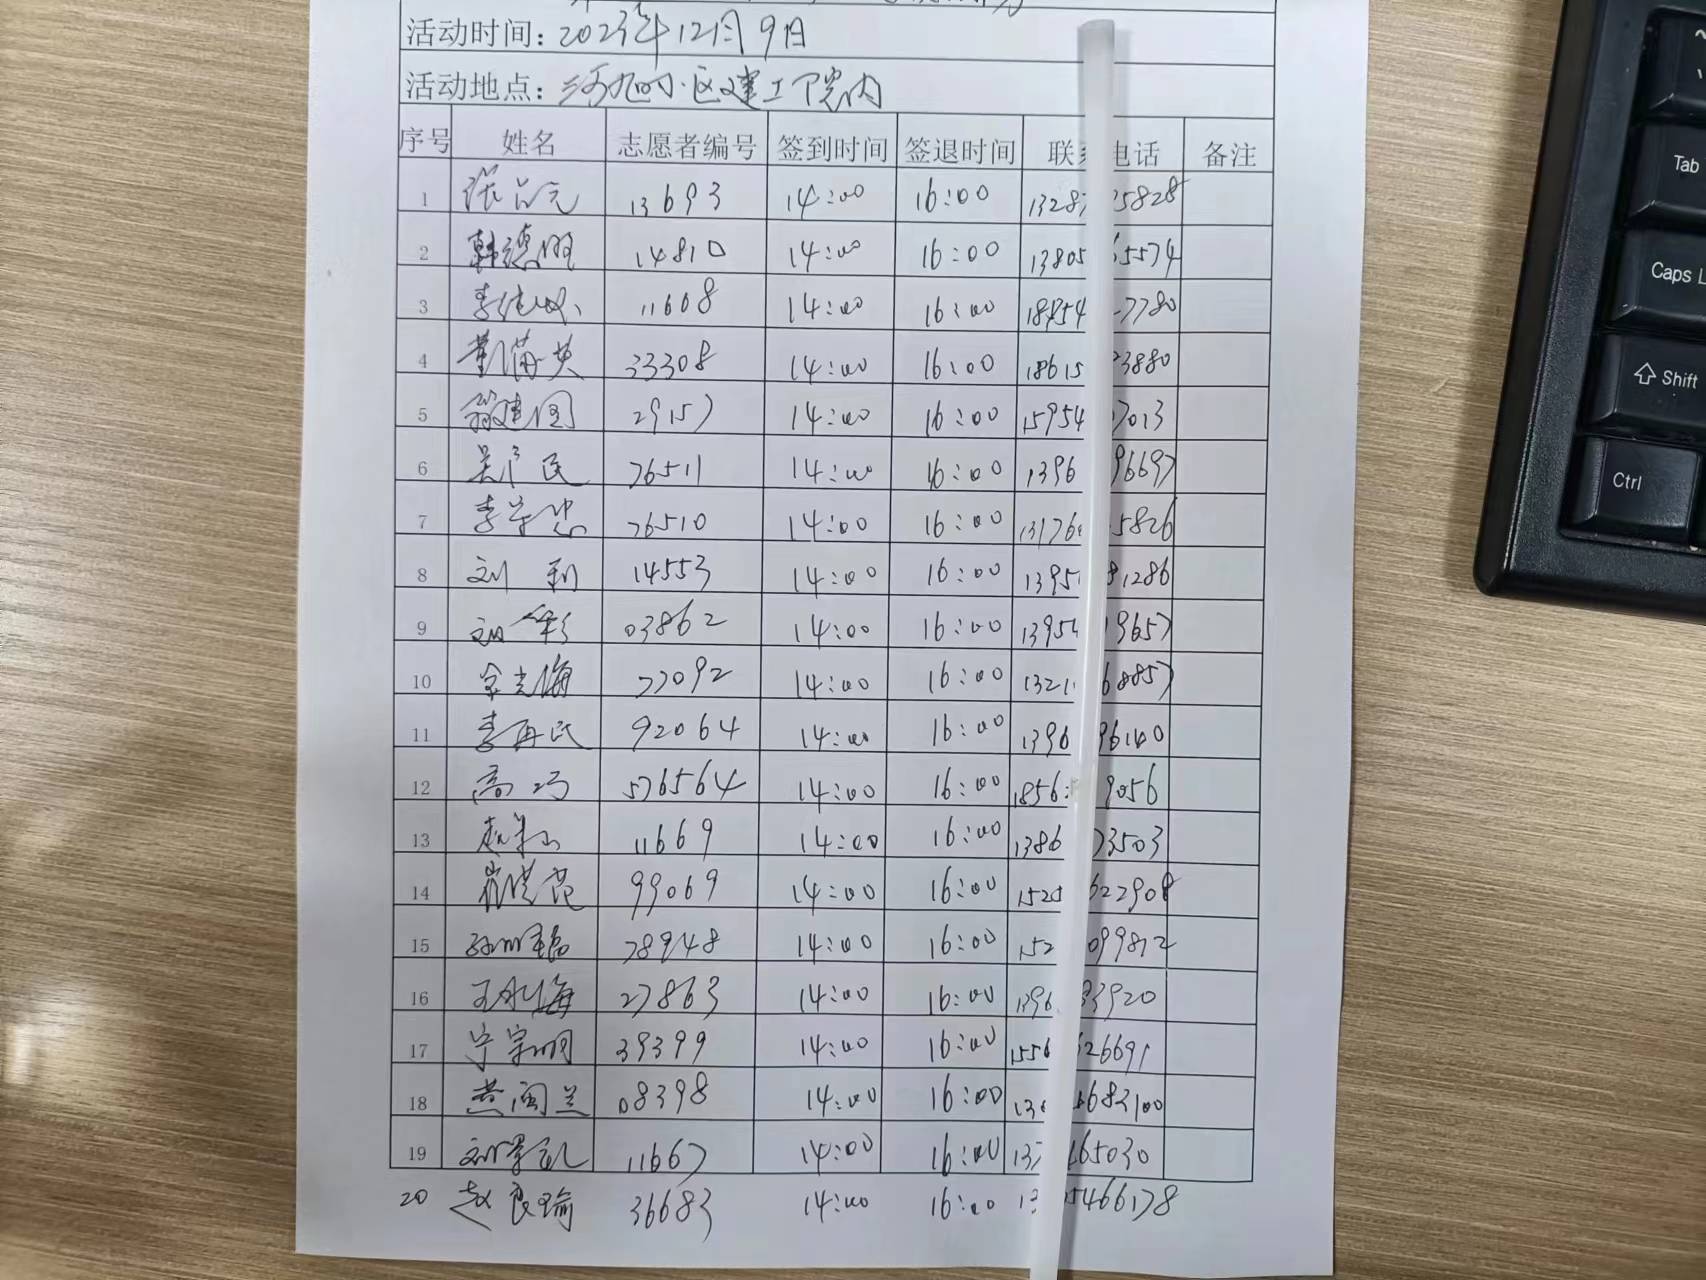 活动时间：2023年12月9日
活动地点：区建工院内
序号 姓名 志愿者编号 签到时间 签退时间 联 电话 备注
1 张 13693 14:00 16:00 1328 5828
2 韩德明 14810 14:00 16:00 13805 5574
3 李 11608 14:00 16:00 18454 7780
4 董满英 33308 14:00 16:00 18615 3880
5 建国 29157 14:00 16:00 15954 7013
6 民 76511 14:00 16:00 1396 96697
7 李学忠 76510 14:00 16:00 13176 5826
8 刘利 14553 14:00 16:00 1395 81286
9 刘 03862 14:00 16:00 1395 19657
10 海 77092 14:00 16:00 1321 68857
11 李再民 92064 14:00 16:00 1396 96140
12 高巧 576564 14:00 16:00 1856 9056
13 赵 11669 14:00 16:00 1386 73503
14 崔 99069 14:00 16:00 152 622908
15 78948 14:00 16:00 152 099812
16 王永海 27863 14:00 16:00 1396 93920
17 宁宗明 39399 14:00 16:00 155 326691
18 兰 08398 14:00 16:00 13 682100
19 刘 11667 14:00 16:00 13 65030
20 赵良瑜 36683 14:00 16:00 1 5466178
Tab
Caps L
Shift
Ctrl